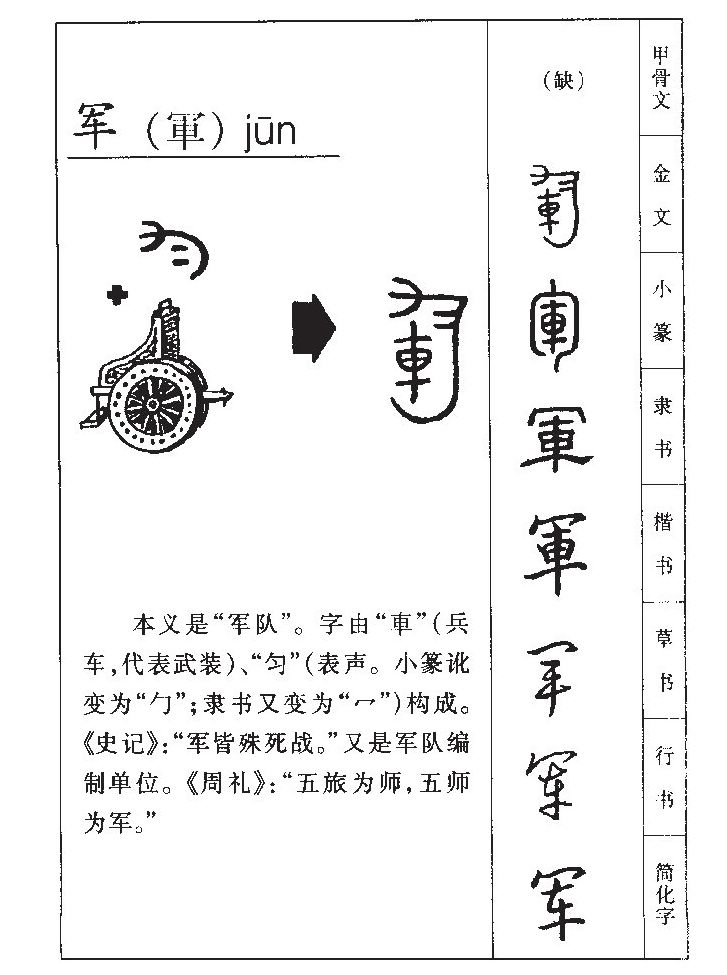 军（軍）jūn
本义是“军队”。字由“車”（兵
车,代表武装）、“匀”（表声。小篆讹
变为“勹”；隶书又变为“冖”）构成。
《史记》:“军皆殊死战。”又是军队编
制单位。《周礼》:“五旅为师,五师
为军。”
（缺）
軍
軍
軍
軍
军
军
军
甲骨文
金文
小篆
隶书
楷书
草书
行书
简化字